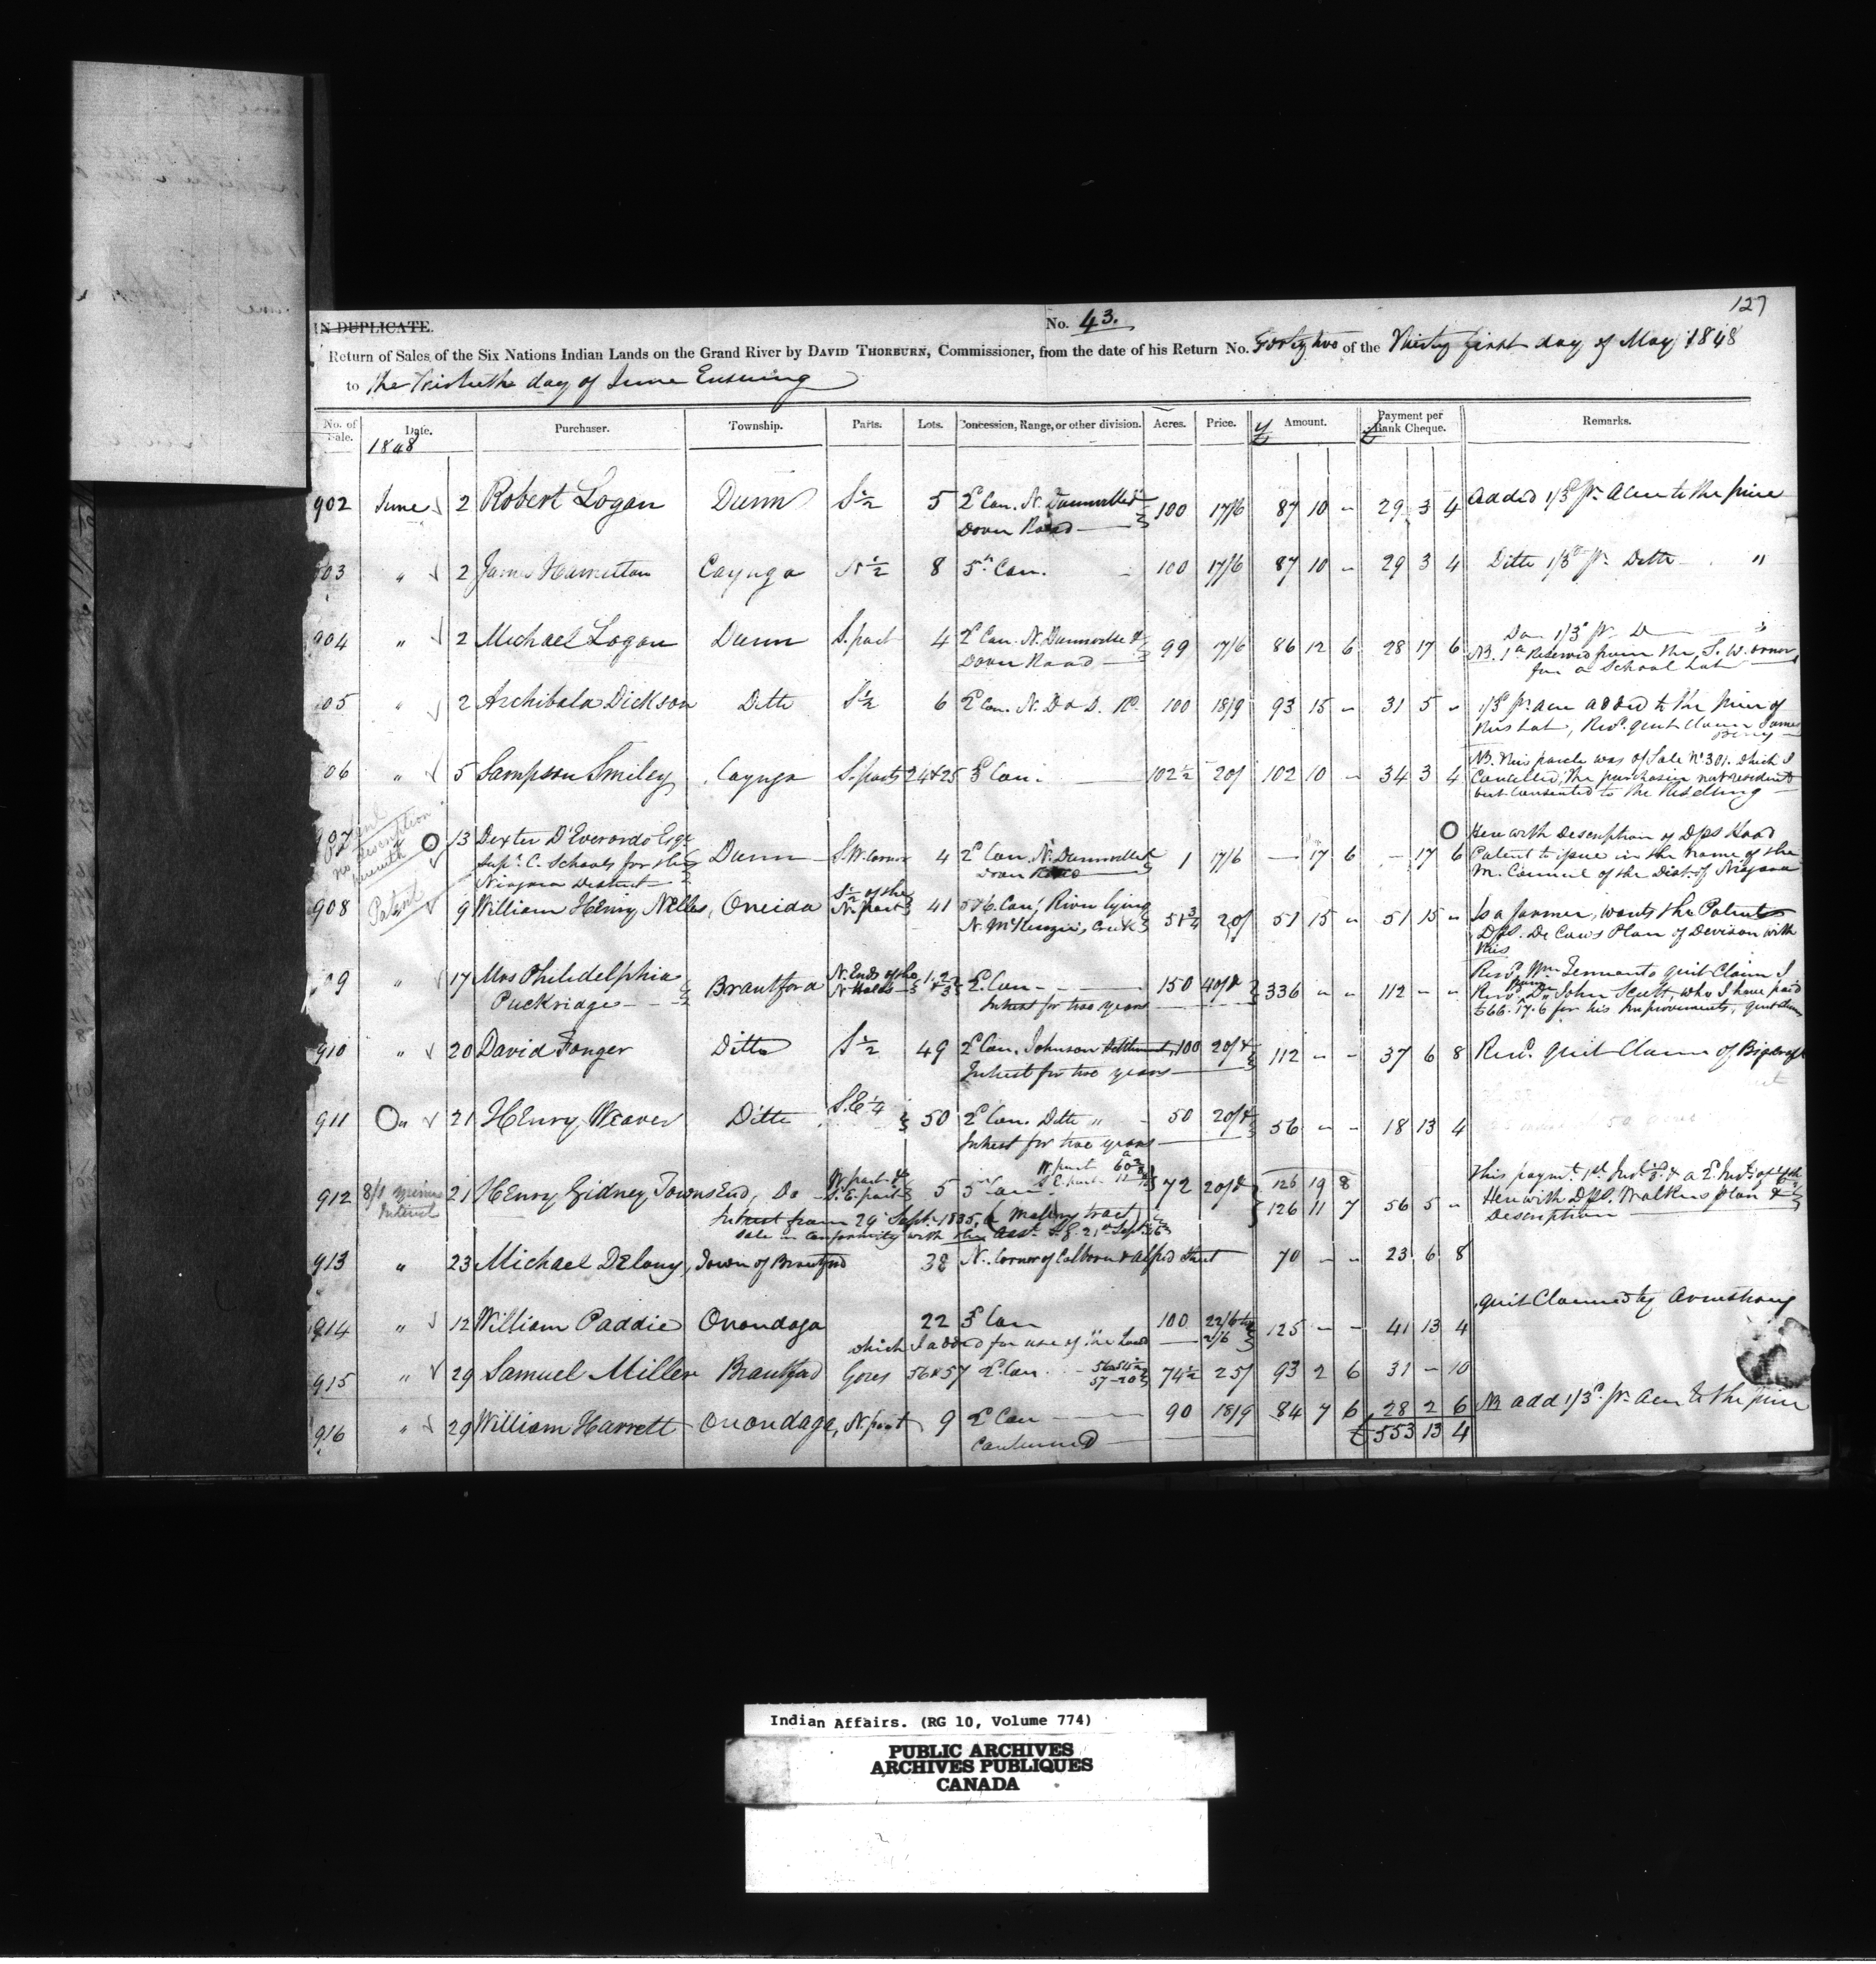 127
IN DUPLICATE.
No. 43.
Return of Sales of the Six Nations Indian Lands on the Grand River by DAVID THORBURN, Commissioner, from the date of his Return No. Forty two of the Thirty first day of May 1848
to the Thirtieth day of June Ensuing
No. of Sale. Date. Purchaser. Township. Parts. Lots. Concession, Range, or other division. Acres. Price. £ Amount. £ Payment per Bank Cheque. Remarks.
1848
902 June 2 Robert Logan Dunn S ½ 5 2d Con. N. Dannville & 100 17/6 87 10 - 29 3 4 Added 1/3d pr. Acre to the price
Dover Road
903 " 2 James Hamilton Cayuga N ½ 8 5th Con. 100 17/6 87 10 - 29 3 4 Ditto 1/3d pr. Ditto "
904 " 2 Michael Logan Dunn S. part 4 2d Con. N. Dunnville & 99 17/6 86 12 6 28 17 6 Do 1/3d pr. D
Dover Road
NB. 1a Reserved from the S. W. corner
for a School Lot
905 " 2 Archibald Dickson Ditto S ½ 6 2d Con. N. D & D. Rd. 100 18/9 93 15 - 31 5 - 1/3d pr. acre added to the price of
this Lot, Recd. quit claim James
906 " 5 Sampson Smiley Cayuga S. parts 24 & 25 3d Con. 102½ 20/ 102 10 - 34 3 4 NB. This parcle was of Sale No 301. which I
Cancelled, The purchaser not resident
but consented to the Reselling
907 13 Dexter D'Everardo Esqr Dunn S. W. Corner 4 2d Con. N. Dunnville & 1 17/6 - 17 6 - 17 6 Here with Description of Dps Hood
Supt. C. Schools for the Dover Road Patent to issue in the name of the
Niagara District M. Council of the Dist. of Niagara
Patent
no description
herewith
908 Patent 9 William Henry Nelles, Oneida S ½ of the N. part 41 5 & 6. Con. River lying 51¾ 20/ 51 15 - 51 15 - Is a farmer, wants the Patent
N. McKenzie's Creek Dpl. De Cew's Plan of Devison with
this
909 " 17 Mrs Philidelphia Brantford N. Ends of the 1. 2 & 3 2d Con. 150 40/& 336 - - 112 - - Recd. Wm Tennants quit Claim I
Puckridge N Halves Intrest for two years
Recd. Do John Scott, who I have paid
£66. 17. 6 for his Improvements, quit Claim
910 " 20 David Fonger Ditto S ½ 49 2d Con. Johnson Settlement 100 20/& 112 - - 37 6 8 Recd. quit Claim of Bigcraft
Intrest for two years
911 " 21 Henry Weaver Ditto S. E ¼ 50 2d Con. Ditto " 50 20/& 56 - - 18 13 4
Intrest for two years
912 21 Henry Gidney Townsend, Do W. part & S. E. part 5 5th Con. W. part 60 S E part 72 20/& 126 19 8
126 11 7 56 5 - This paymt. 1st Inst. & a 2d Inst. of
Intrest from 29 Sept. 1835, (Malleny tract) Here with Dpl. Walkers plan &
Sale in Conformity with the Asst. S. G. 21st Sept. Description
913 " 23 Michael Delany, Town of Brantford 38 N. Corner of Colborn & Alfred Street 70 - - 23 6 8
914 " 12 William Paddie Onondaga 22 3d Con 100 22/6 & 2/6 125 - - 41 13 4 quit Claimed by Armstrong
which I added for use of the Land
915 " 29 Samuel Miller Brantford Gores 56 & 57 2d Con. 56 54½ 57 20 74½ 25/ 93 2 6 31 - 10
916 " 29 William Harrett Onondaga, N. part 9 2d Con 90 18/9 84 7 6 28 2 6 NB add 1/3d. pr. acre to the price
Continued £553 13 4
Indian Affairs. (RG 10, Volume 774)
PUBLIC ARCHIVES
ARCHIVES PUBLIQUES
CANADA